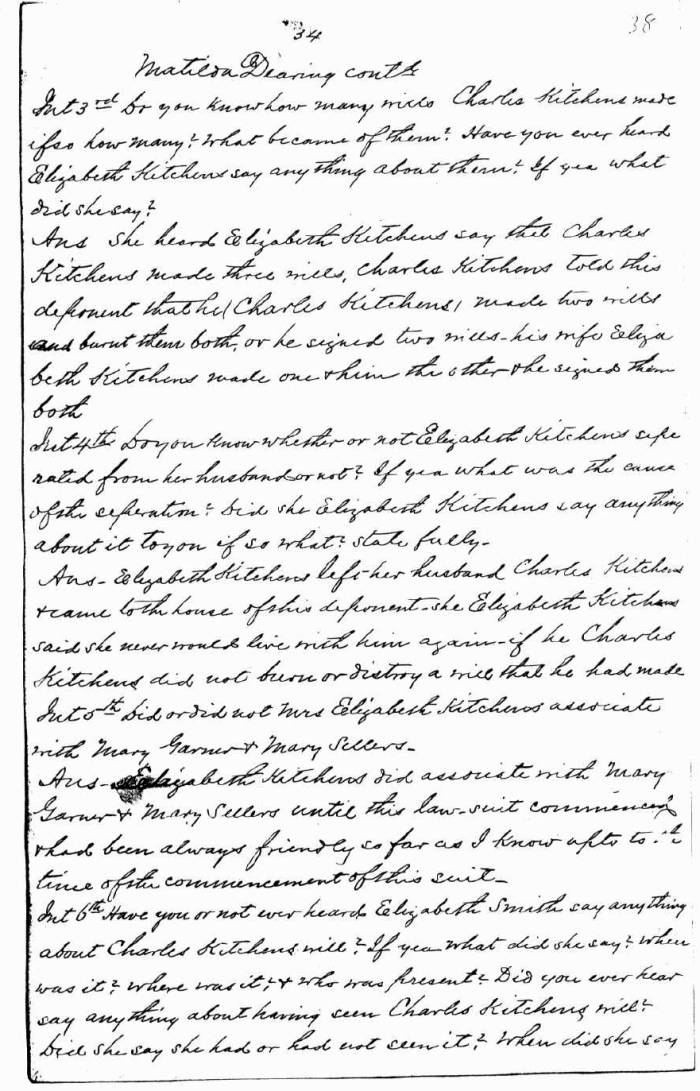 34
38
Matilda Dearing contd
Int 3rd Do you know how many wills Charles Kitchens made
if so how many? What became of them? Have you ever heard
Elizabeth Kitchens say any thing about them? If yea what
did she say?
Ans She heard Elizabeth Kitchens say that Charles
Kitchens made three wills, Charles Kitchens told this
deponent that he (Charles Kitchens) made two wills
and burnt them both, or he signed two wills - his wife Eliza
beth Kitchens made one & him the other & he signed them
both
Int 4th Do you know whether or not Elizabeth Kitchens sepe
rated from her husband or not? If yea what was the cause
of the seperation? Did she Elizabeth Kitchens say anything
about it to you if so what? state fully -
Ans - Elizabeth Kitchens left her husband Charles Kitchens
& came to the house of this deponent - she Elizabeth Kitchens
said she never would live with him again - if he Charles
Kitchens did not burn or distroy a will that he had made
Int 5th Did or did not Mrs Elizabeth Kitchens associate
with Mary Garner & Mary Sellers -
Ans - Elizabeth Kitchens did associate with Mary
Garner & Mary Sellers until this law-suit commenced
& had been always friendly so far as I know up to the
time of the commencement of this suit -
Int 6th Have you or not ever heard Elizabeth Smith say anything
about Charles Kitchens will? If yea what did she say? When
was it? where was it? & who was present? Did you ever hear
say anything about having seen Charles Kitchens will?
Did she say she had or had not seen it? When did she say